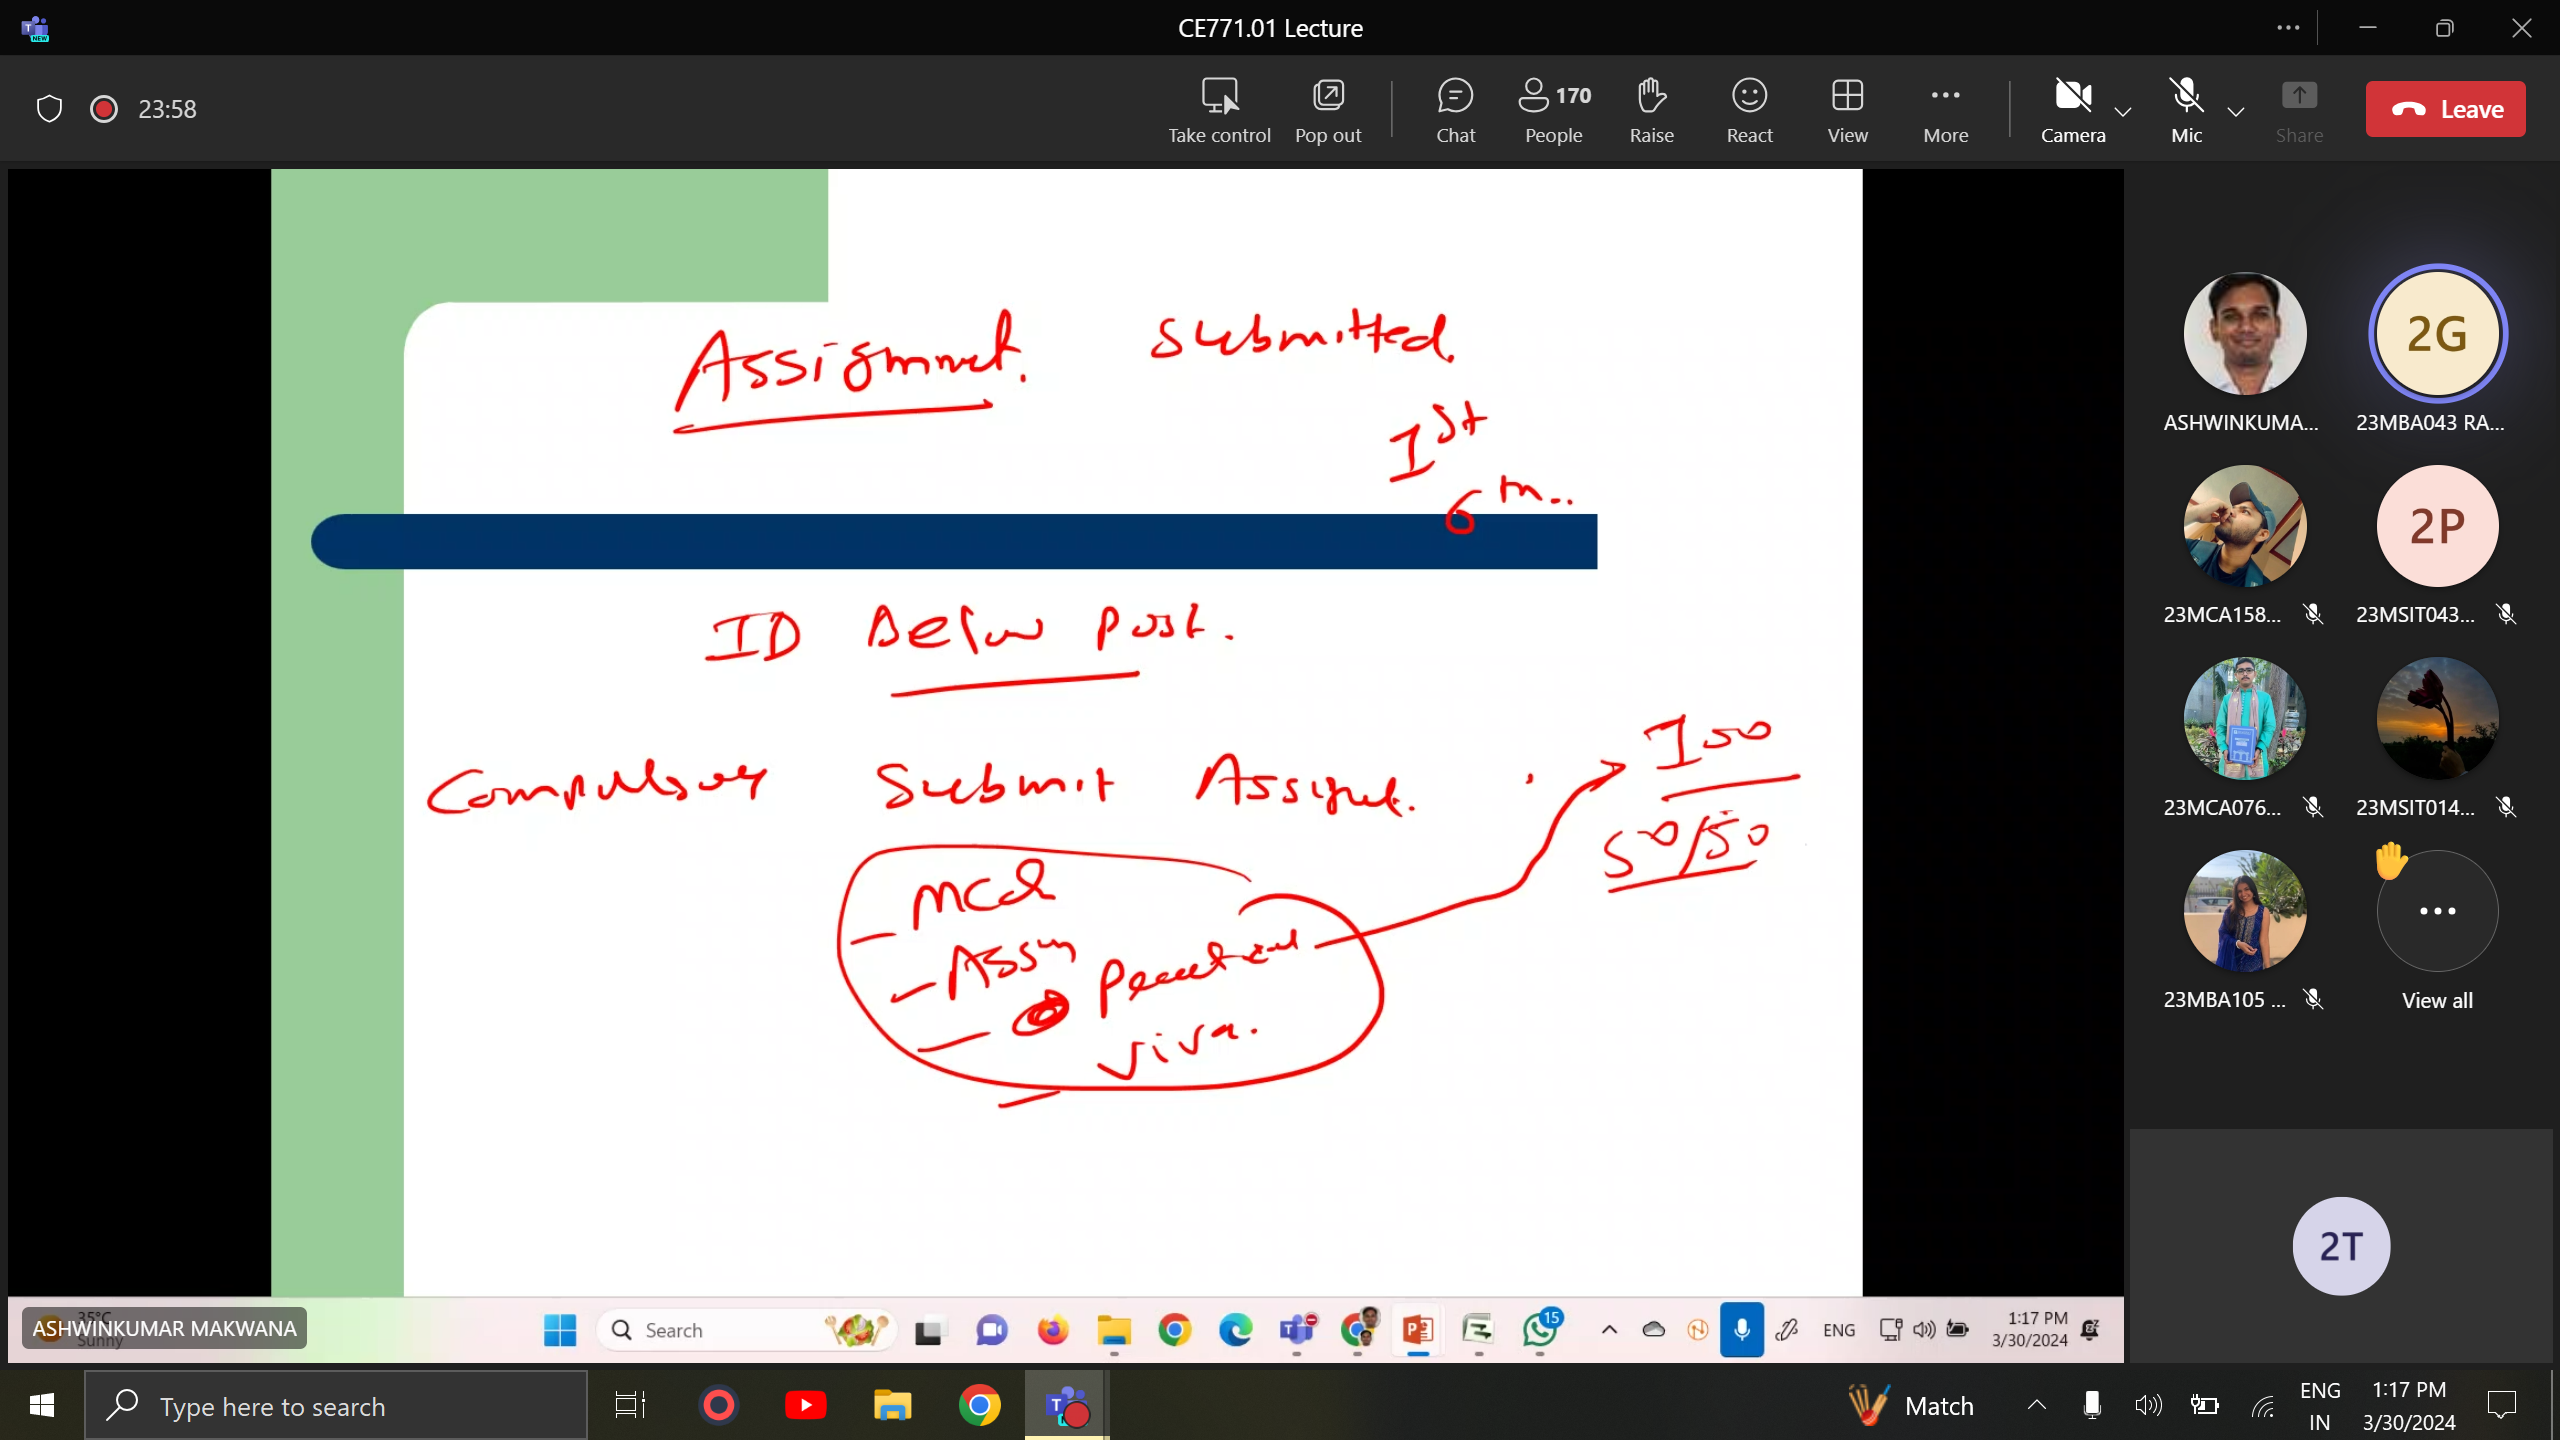 CE771.01 Lecture
23:58
Take control
Pop out
Chat
170
People
Raise
React
View
More
Camera
Mic
Share
Leave
Assignmnet. Submitted.
1st
6th..
ID Below post.
Compulsory Submit Assignt.
I 50
50/50
- MCQ
- Assn
- Practical
viva.
ASHWINKUMA...
23MBA043 RA...
2G
23MCA158...
23MSIT043...
2P
23MCA076...
23MSIT014...
23MBA105 ...
View all
2T
35°C
Sunny
ASHWINKUMAR MAKWANA
Search
15
ENG
1:17 PM
3/30/2024
Type here to search
Match
ENG
IN
1:17 PM
3/30/2024